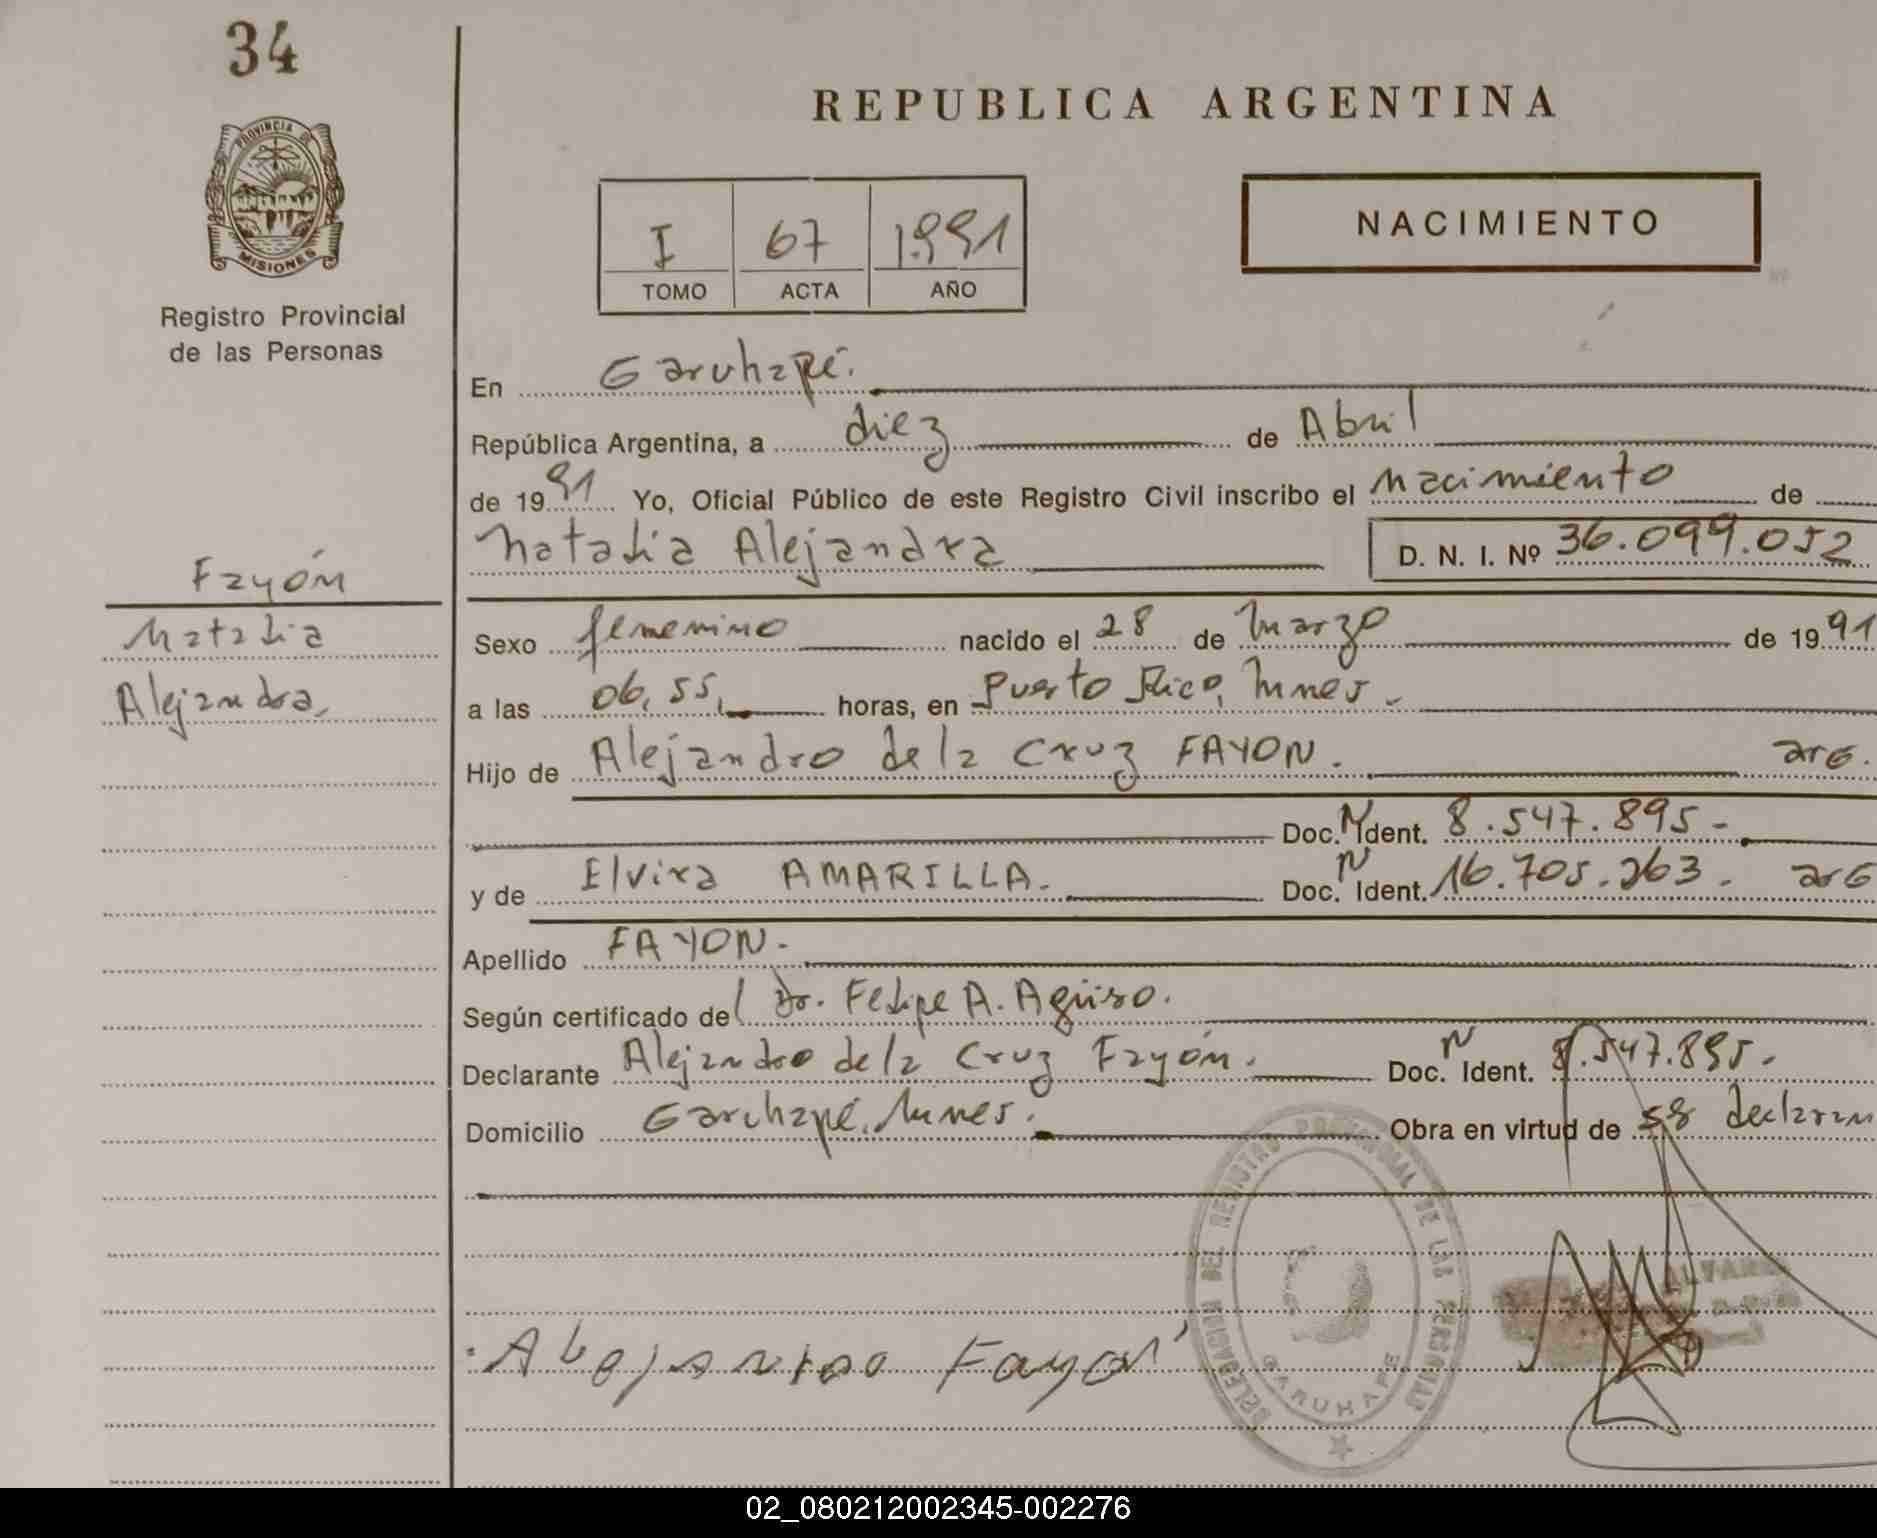 34
PROVINCIA DE
MISIONES
Registro Provincial
de las Personas
Fayón
Natalia
Alejandra,
REPUBLICA ARGENTINA
I 67 1.991
TOMO ACTA AÑO
NACIMIENTO
En Garuhapé.
República Argentina, a diez de Abril
de 1991 Yo, Oficial Público de este Registro Civil inscribo el nacimiento de
Natalia Alejandra D. N. I. Nº 36.099.052
Sexo femenino nacido el 28 de Marzo de 1991
a las 06,55, horas, en Puerto Rico,
Hijo de Alejandro de la Cruz FAYON. arg.
Doc. N Ident. 8.547.895-
y de Elvira AMARILLA. Doc. N Ident. 16.705.263. arg
Apellido FAYON.-
Según certificado del Dr. Felipe A.
Declarante Alejandro de la Cruz Fayón. Doc. N Ident. 8.547.895.
Domicilio Garuhapé, Obra en virtud de su declaran
DELEGACION DEL REGISTRO PROVINCIAL DE LAS PERSONAS
GARUHAPE
Fayon
02_080212002345-002276